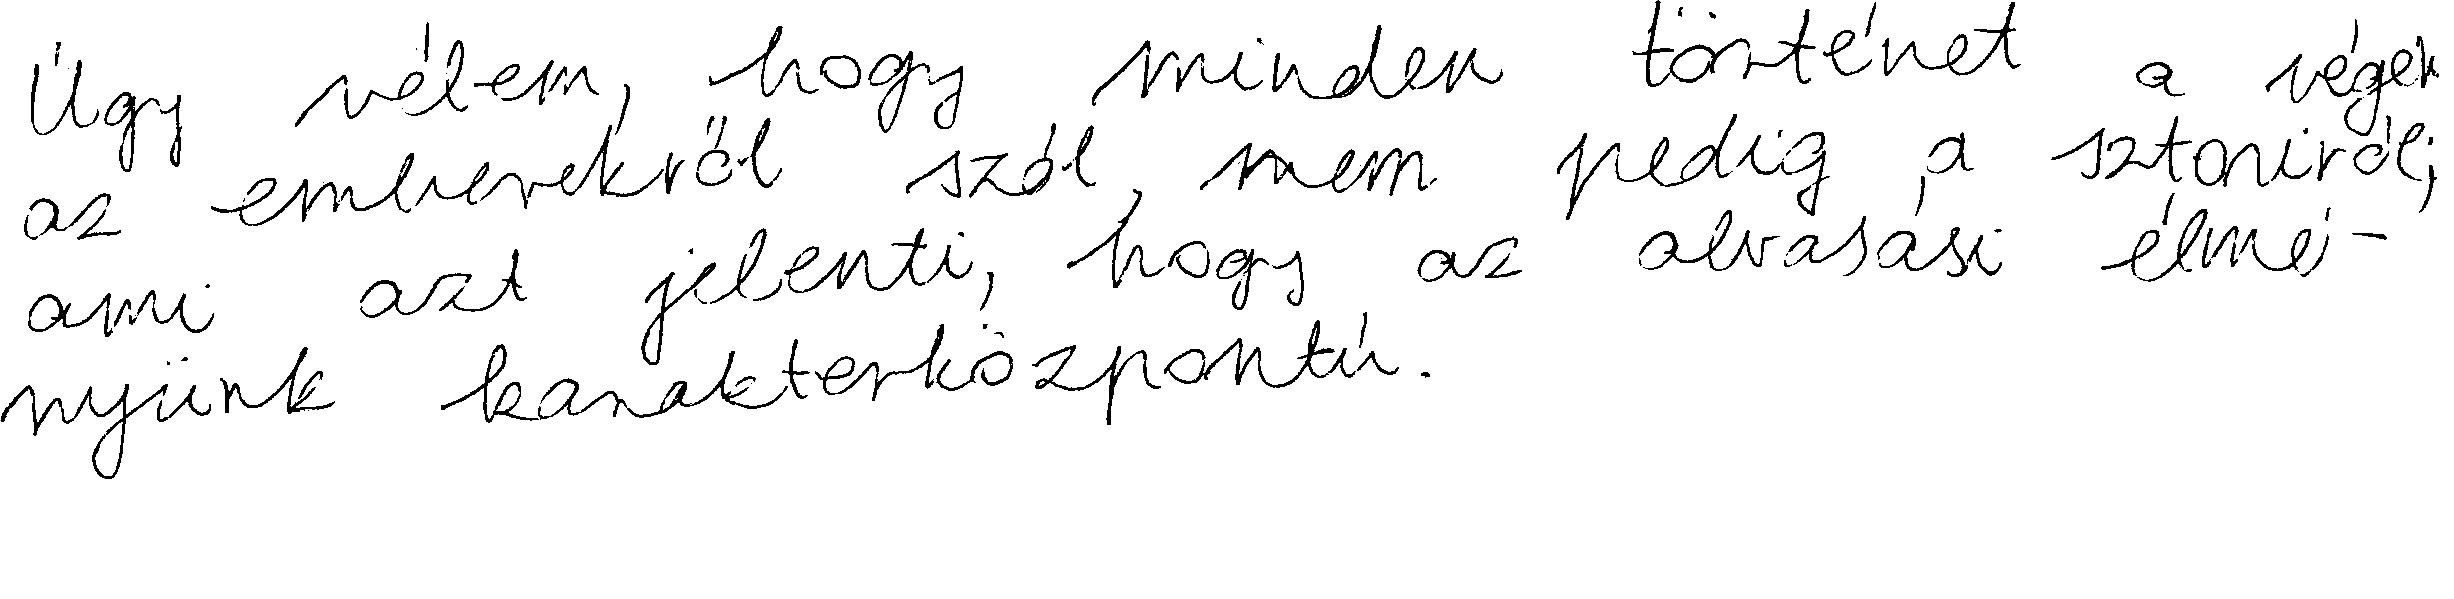 Úgy vélem, hogy minden történet a végén
az emberekről szól, nem pedig a sztoriról;
ami azt jelenti, hogy az olvasási élmé-
nyünk karakterközpontú.